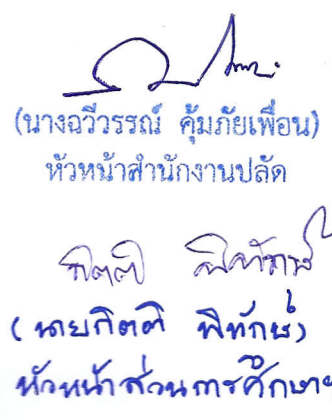 (นางฉวีวรรณ์ คุ้มภัยเพื่อน)
หัวหน้าสำนักงานปลัด
กิตติ พิทักษ์
(นายกิตติ พิทักษ์)
หัวหน้าส่วนการศึกษาฯ